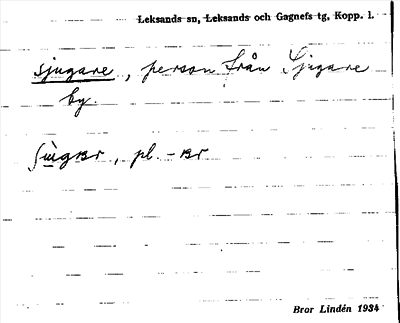 Leksands sn, Leksands och Gagnefs tg, Kopp. l.
sjugare, person från Sjugare
by.
pl. -ər
Bror Lindén 1934